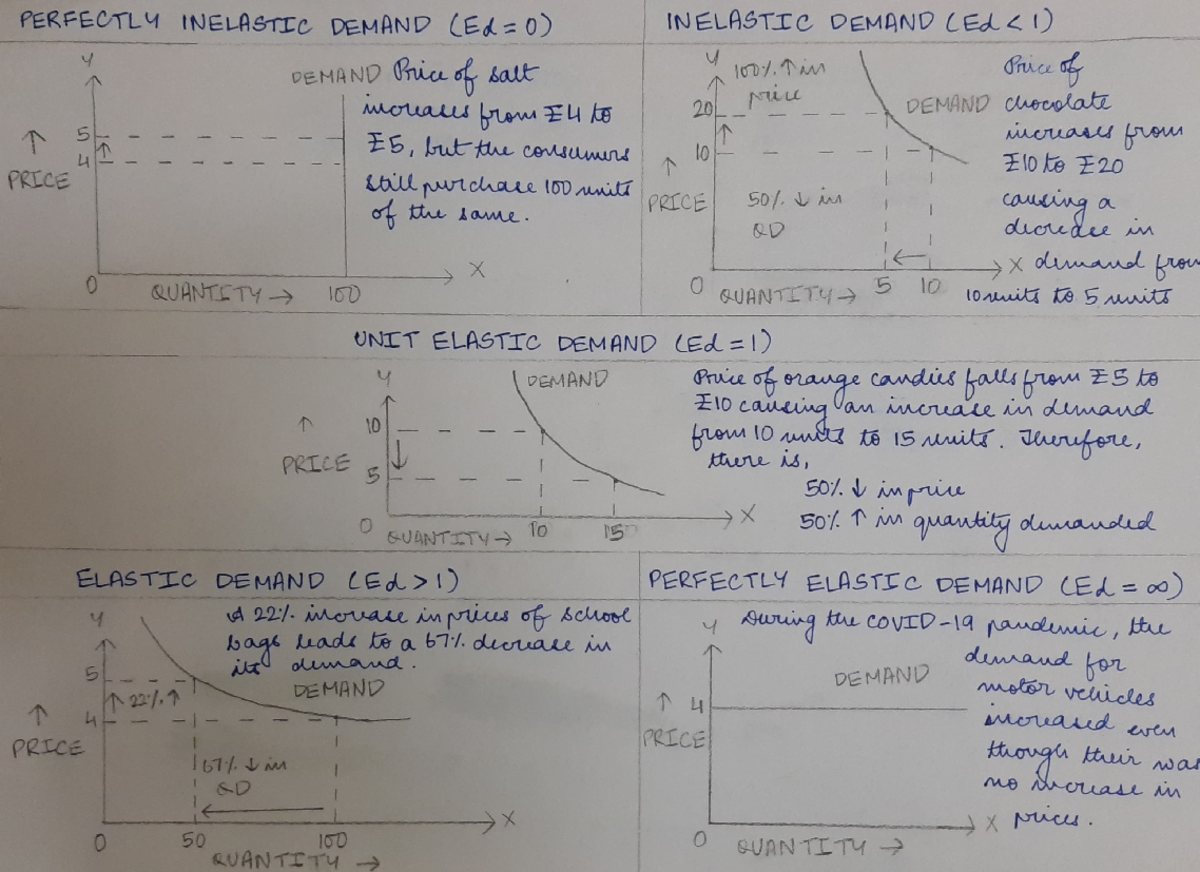 PERFECTLY INELASTIC DEMAND (Ed = 0)
Y
DEMAND
Price of salt
increases from ₹4 to
₹5, but the consumers
still purchase 100 units
of the same.
5
4
↑
PRICE
0
QUANTITY →
100
X
INELASTIC DEMAND (Ed < 1)
Y
100% ↑ in
price
20
10
DEMAND
↑
PRICE
50% ↓ in
QD
0
QUANTITY →
5
10
X
Price of
chocolate
increases from
₹10 to ₹20
causing a
decrease in
demand from
10 units to 5 units
UNIT ELASTIC DEMAND (Ed = 1)
Y
DEMAND
10
5
↑
PRICE
0
QUANTITY →
10
15
X
Price of orange candies falls from ₹5 to
₹10 causing an increase in demand
from 10 units to 15 units. Therefore,
there is,
50% ↓ in price
50% ↑ in quantity demanded
ELASTIC DEMAND (Ed > 1)
Y
A 22% increase in prices of school
bags leads to a 67% decrease in
its demand.
DEMAND
5
↑ 22% ↑
4
↑
PRICE
67% ↓ in
QD
0
50
100
X
QUANTITY →
PERFECTLY ELASTIC DEMAND (Ed = ∞)
Y
During the COVID-19 pandemic, the
demand for
motor vehicles
increased even
though their was
no increase in
prices.
DEMAND
4
↑
PRICE
0
QUANTITY →
X